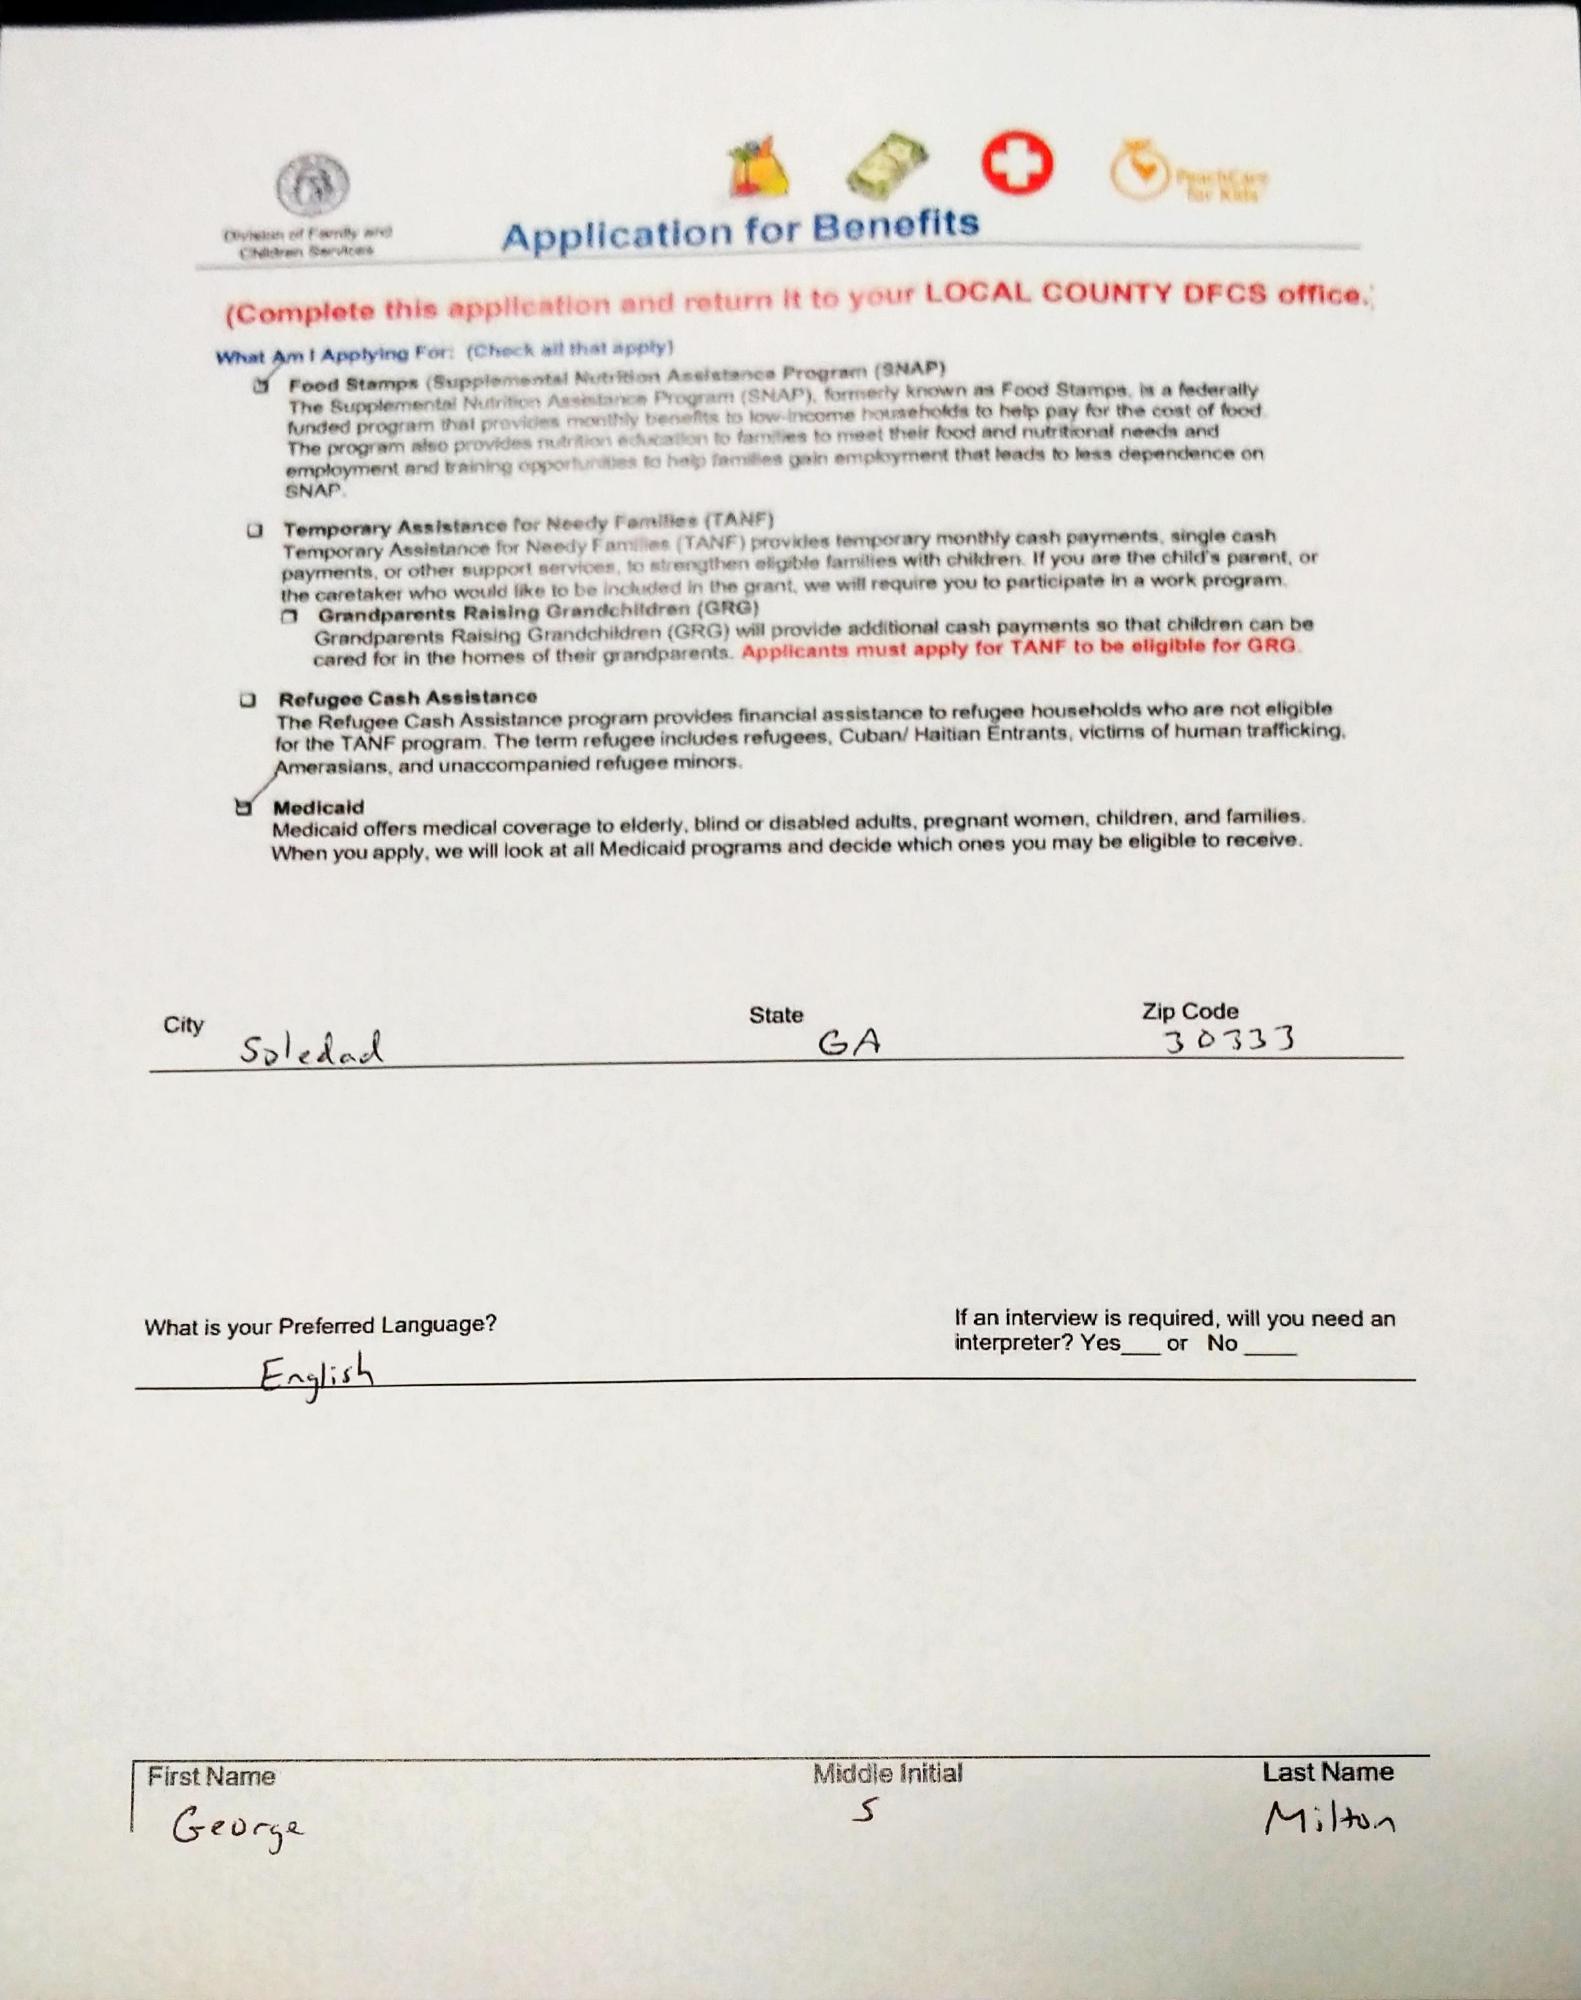 PeachCare
for Kids
Division of Family and
Children Services
Application for Benefits
(Complete this application and return it to your LOCAL COUNTY DFCS office.)
What Am I Applying For: (Check all that apply)
Food Stamps (Supplemental Nutrition Assistance Program (SNAP)
The Supplemental Nutrition Assistance Program (SNAP), formerly known as Food Stamps, is a federally
funded program that provides monthly benefits to low-income households to help pay for the cost of food.
The program also provides nutrition education to families to meet their food and nutritional needs and
employment and training opportunities to help families gain employment that leads to less dependence on
SNAP.
Temporary Assistance for Needy Families (TANF)
Temporary Assistance for Needy Families (TANF) provides temporary monthly cash payments, single cash
payments, or other support services, to strengthen eligible families with children. If you are the child's parent, or
the caretaker who would like to be included in the grant, we will require you to participate in a work program.
Grandparents Raising Grandchildren (GRG)
Grandparents Raising Grandchildren (GRG) will provide additional cash payments so that children can be
cared for in the homes of their grandparents. Applicants must apply for TANF to be eligible for GRG.
Refugee Cash Assistance
The Refugee Cash Assistance program provides financial assistance to refugee households who are not eligible
for the TANF program. The term refugee includes refugees, Cuban/ Haitian Entrants, victims of human trafficking,
Amerasians, and unaccompanied refugee minors.
Medicaid
Medicaid offers medical coverage to elderly, blind or disabled adults, pregnant women, children, and families.
When you apply, we will look at all Medicaid programs and decide which ones you may be eligible to receive.
City State Zip Code
Soledad GA 30333
What is your Preferred Language? If an interview is required, will you need an
interpreter? Yes___ or No ____
English
First Name Middle Initial Last Name
George S Milton